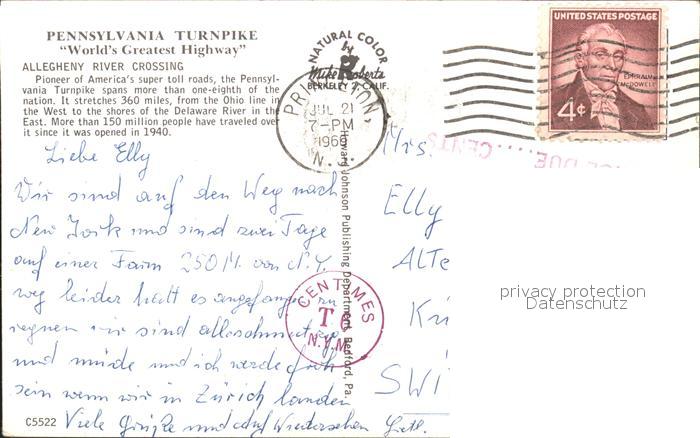 PENNSYLVANIA TURNPIKE
"World's Greatest Highway"
ALLEGHENY RIVER CROSSING
Pioneer of America's super toll roads, the Pennsyl-
vania Turnpike spans more than one-eighth of the
nation. It stretches 360 miles, from the Ohio line in
the West to the shores of the Delaware River in the
East. More than 150 million people have traveled over
it since it was opened in 1940.
NATURAL COLOR
by
Mike Roberts
BERKELEY 2, CALIF.
PRINCETON
JUL 21
7-PM
1960
N.J.
UNITED STATES POSTAGE
EPHRAIM
McDOWELL
4¢
DUE ..... CENTS
Liebe Elly
Wir sind auf den Weg nach
New York und sind zwei Tage
auf einer Farm 250 M. von N.Y.
weg leider hatt es angefangen zu
regnen wir sind alle
und müde und ich werde froh
sein wenn wir in Zürich landen
Viele Grüße und auf Wiedersehen
Howard Johnson Publishing Department, Bedford, Pa.
CENTIMES
T
N.Y.
Mrs.
Elly
ALTe
SWI
privacy protection
Datenschutz
C5522